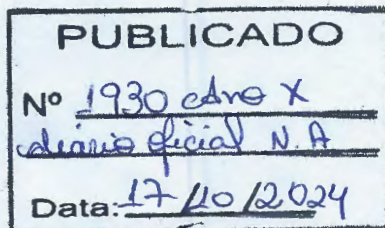 PUBLICADO
Nº 1930 Ano X
diário oficial N.A
Data: 17/10/2024